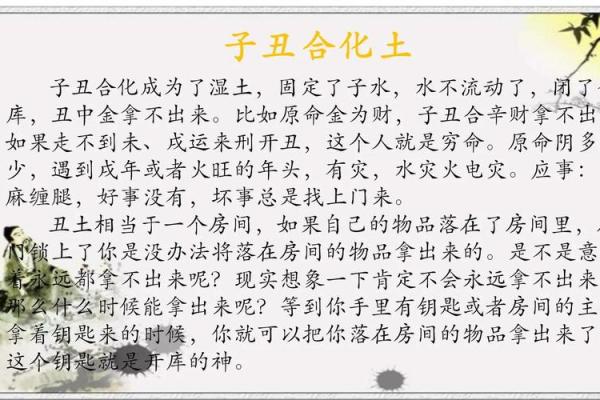 子丑合化土
子丑合化成为了湿土，固定了子水，水不流动了，闭了
库，丑中金拿不出来。比如原命金为财，子丑合辛财拿不出
如果走不到未、戌运来刑开丑，这个人就是穷命。原命阴多
少，遇到戌年或者火旺的年头，有灾，水灾火电灾。应事：
麻缠腿，好事没有，坏事总是找上门来。
丑土相当于一个房间，如果自己的物品落在了房间里，
门锁上了你是没办法将落在房间的物品拿出来的。是不是意
着永远都拿不出来呢？现实想象一下肯定不会永远拿不出来
那么什么时候能拿出来呢？等到你手里有钥匙或者房间的主
拿着钥匙来的时候，你就可以把你落在房间的物品拿出来了
这个钥匙就是开库的神。